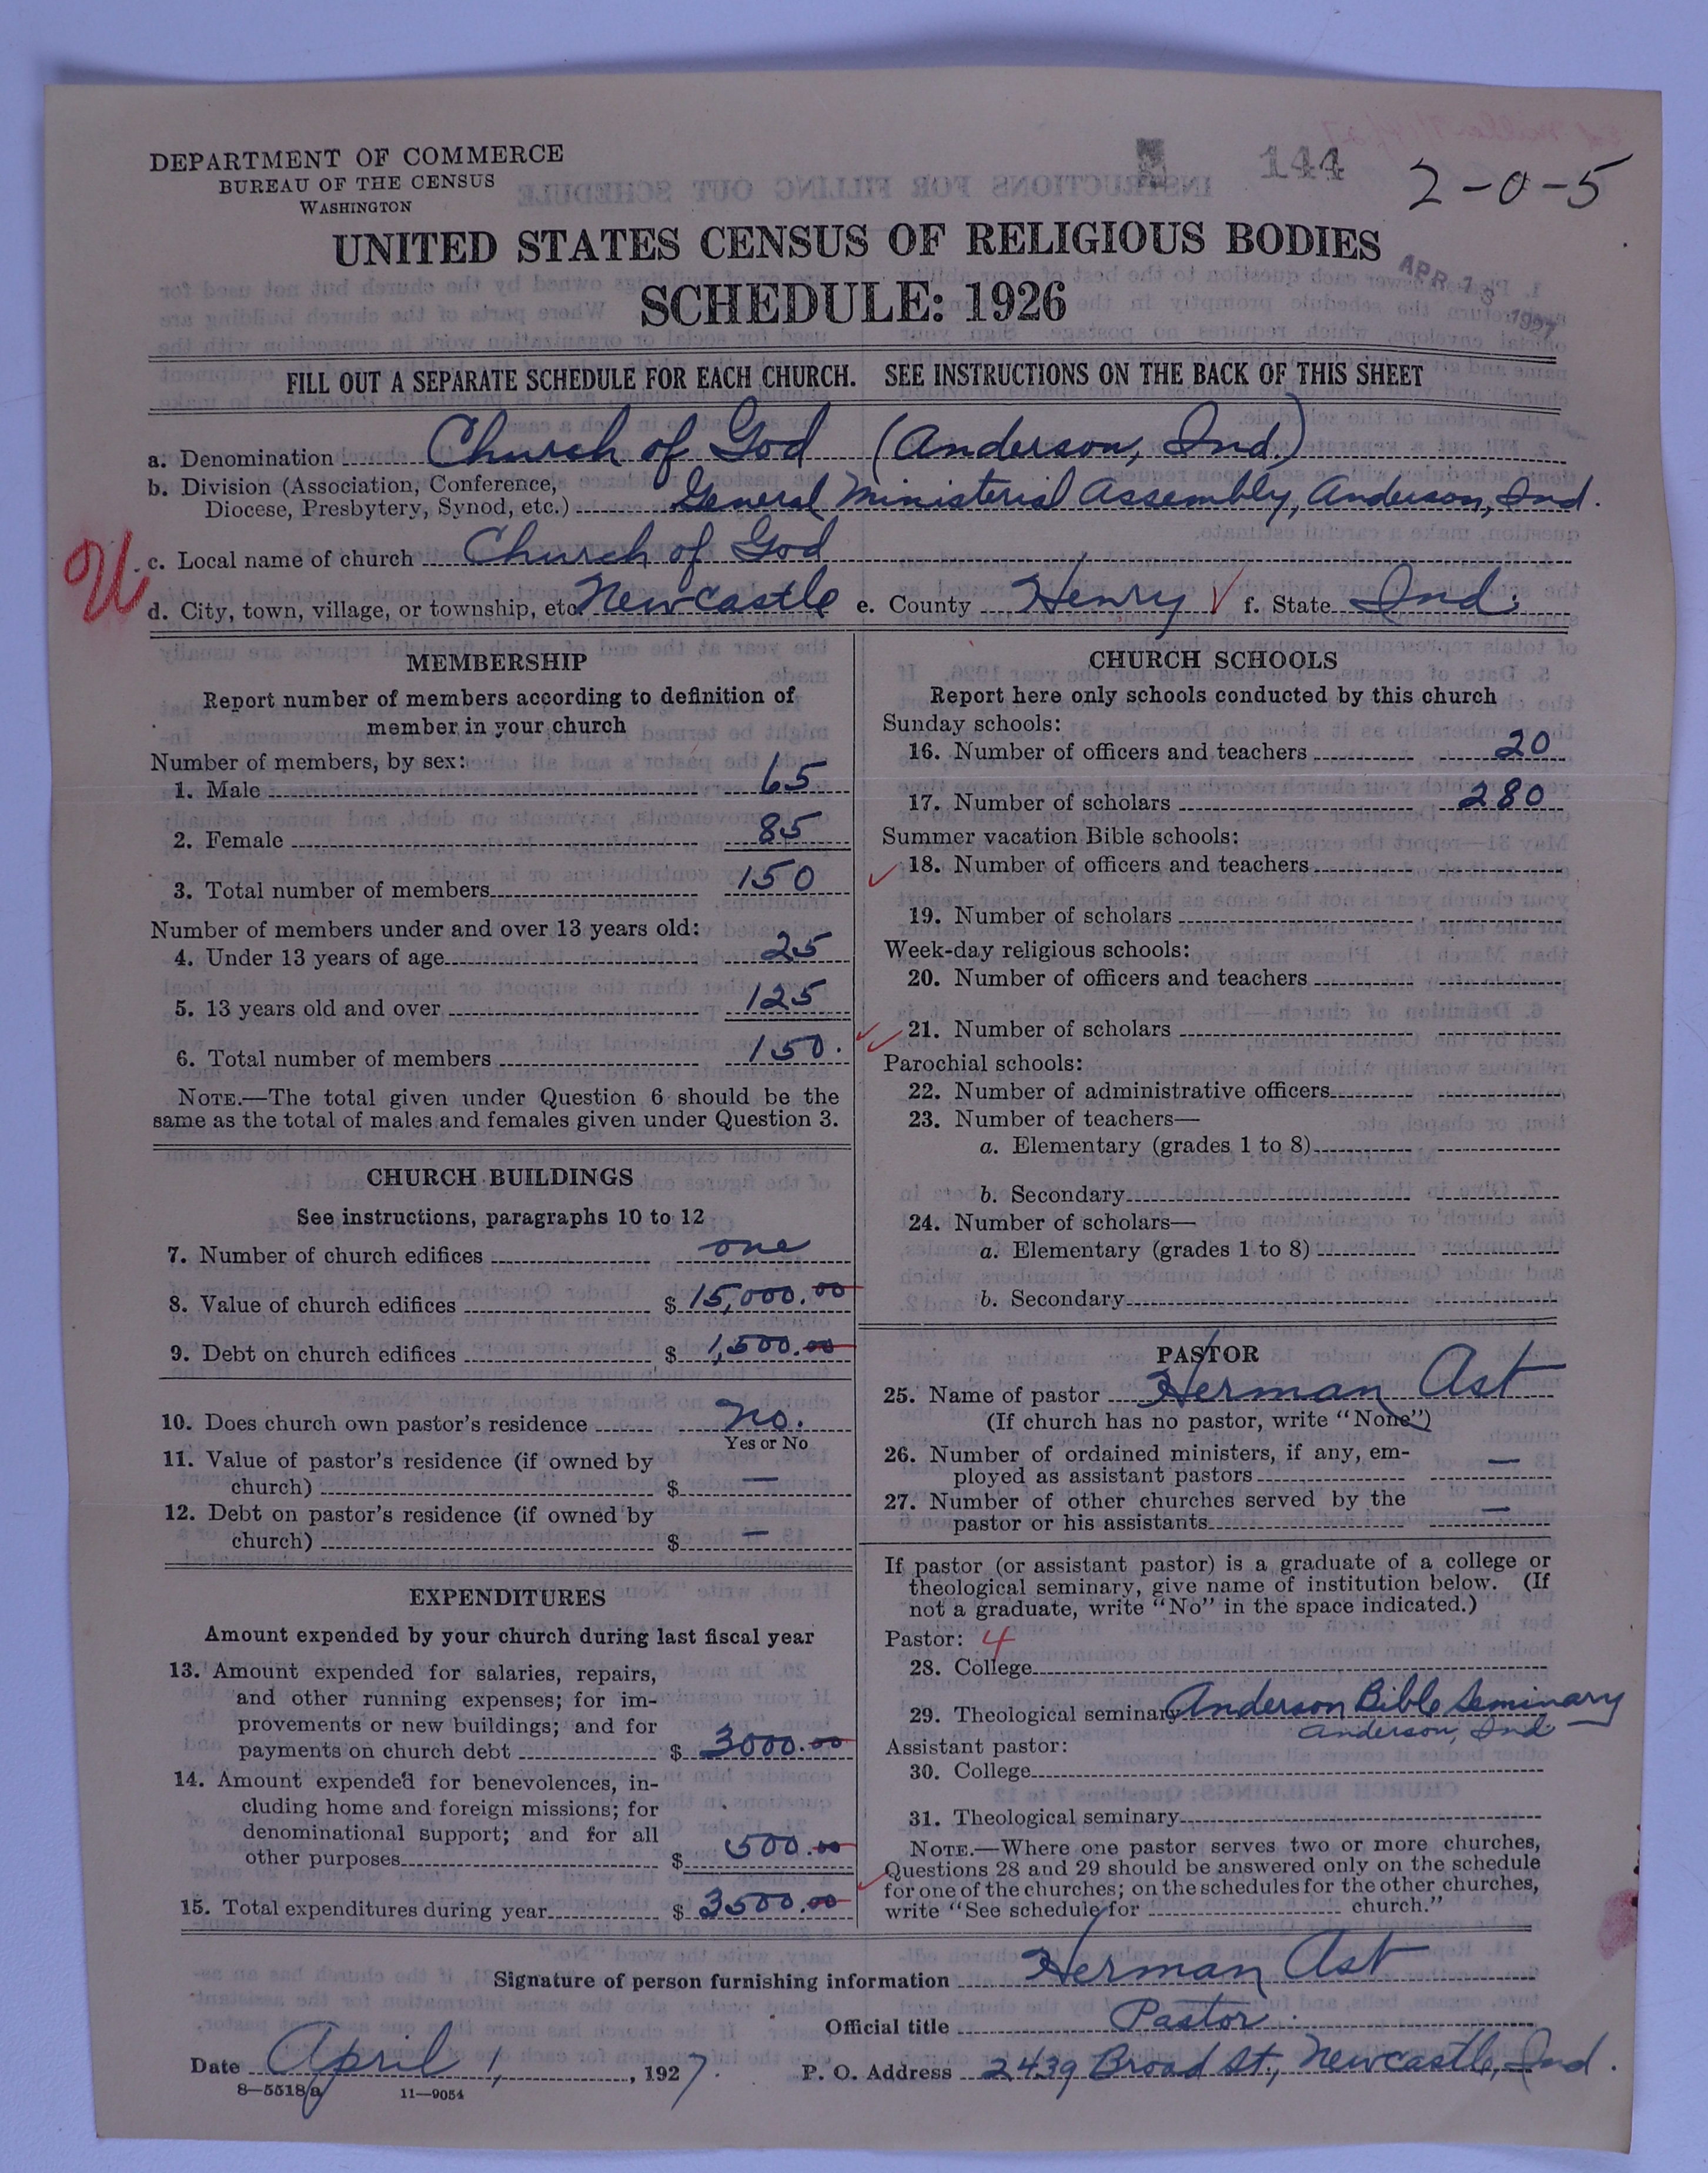 DEPARTMENT OF COMMERCE
BUREAU OF THE CENSUS
WASHINGTON
144
2-0-5
UNITED STATES CENSUS OF RELIGIOUS BODIES
SCHEDULE: 1926
APR 13 1927
FILL OUT A SEPARATE SCHEDULE FOR EACH CHURCH. SEE INSTRUCTIONS ON THE BACK OF THIS SHEET
a. Denomination Church of God (Anderson, Ind.)
b. Division (Association, Conference,
Diocese, Presbytery, Synod, etc.) General Ministerial Assembly, Anderson, Ind.
c. Local name of church Church of God
d. City, town, village, or township, etc. Newcastle e. County Henry f. State Ind.
MEMBERSHIP
Report number of members according to definition of
member in your church
Number of members, by sex:
1. Male 65
2. Female 85
3. Total number of members 150
Number of members under and over 13 years old:
4. Under 13 years of age 25
5. 13 years old and over 125
6. Total number of members 150.
NOTE.—The total given under Question 6 should be the
same as the total of males and females given under Question 3.
CHURCH BUILDINGS
See instructions, paragraphs 10 to 12
7. Number of church edifices one
8. Value of church edifices $ 15,000.00
9. Debt on church edifices $ 1,500.00
10. Does church own pastor's residence No.
Yes or No
11. Value of pastor's residence (if owned by
church) $ —
12. Debt on pastor's residence (if owned by
church) $ —
EXPENDITURES
Amount expended by your church during last fiscal year
13. Amount expended for salaries, repairs,
and other running expenses; for im-
provements or new buildings; and for
payments on church debt $ 3000.00
14. Amount expended for benevolences, in-
cluding home and foreign missions; for
denominational support; and for all
other purposes $ 500.00
15. Total expenditures during year $ 3500.00
CHURCH SCHOOLS
Report here only schools conducted by this church
Sunday schools:
16. Number of officers and teachers 20
17. Number of scholars 280
Summer vacation Bible schools:
18. Number of officers and teachers
19. Number of scholars
Week-day religious schools:
20. Number of officers and teachers
21. Number of scholars
Parochial schools:
22. Number of administrative officers
23. Number of teachers—
a. Elementary (grades 1 to 8)
b. Secondary
24. Number of scholars—
a. Elementary (grades 1 to 8)
b. Secondary
PASTOR
25. Name of pastor Herman Ast
(If church has no pastor, write "None")
26. Number of ordained ministers, if any, em-
ployed as assistant pastors —
27. Number of other churches served by the
pastor or his assistants —
If pastor (or assistant pastor) is a graduate of a college or
theological seminary, give name of institution below. (If
not a graduate, write "No" in the space indicated.)
Pastor: 4
28. College
29. Theological seminary Anderson Bible Seminary
Anderson, Ind
Assistant pastor:
30. College
31. Theological seminary
NOTE.—Where one pastor serves two or more churches,
Questions 28 and 29 should be answered only on the schedule
for one of the churches; on the schedules for the other churches,
write "See schedule for church."
Signature of person furnishing information Herman Ast
Official title Pastor
Date April 1, 1927. P. O. Address 2439 Broad St., Newcastle, Ind.
8—5518a 11—9054